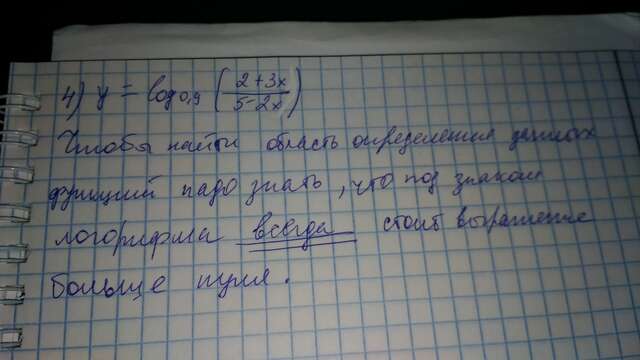 4) y = log0,9 (2+3x / 5-2x)
Чтобы найти область определения данных
функций надо знать, что под знаком
логорифма всегда стоит выражение
больше нуля.